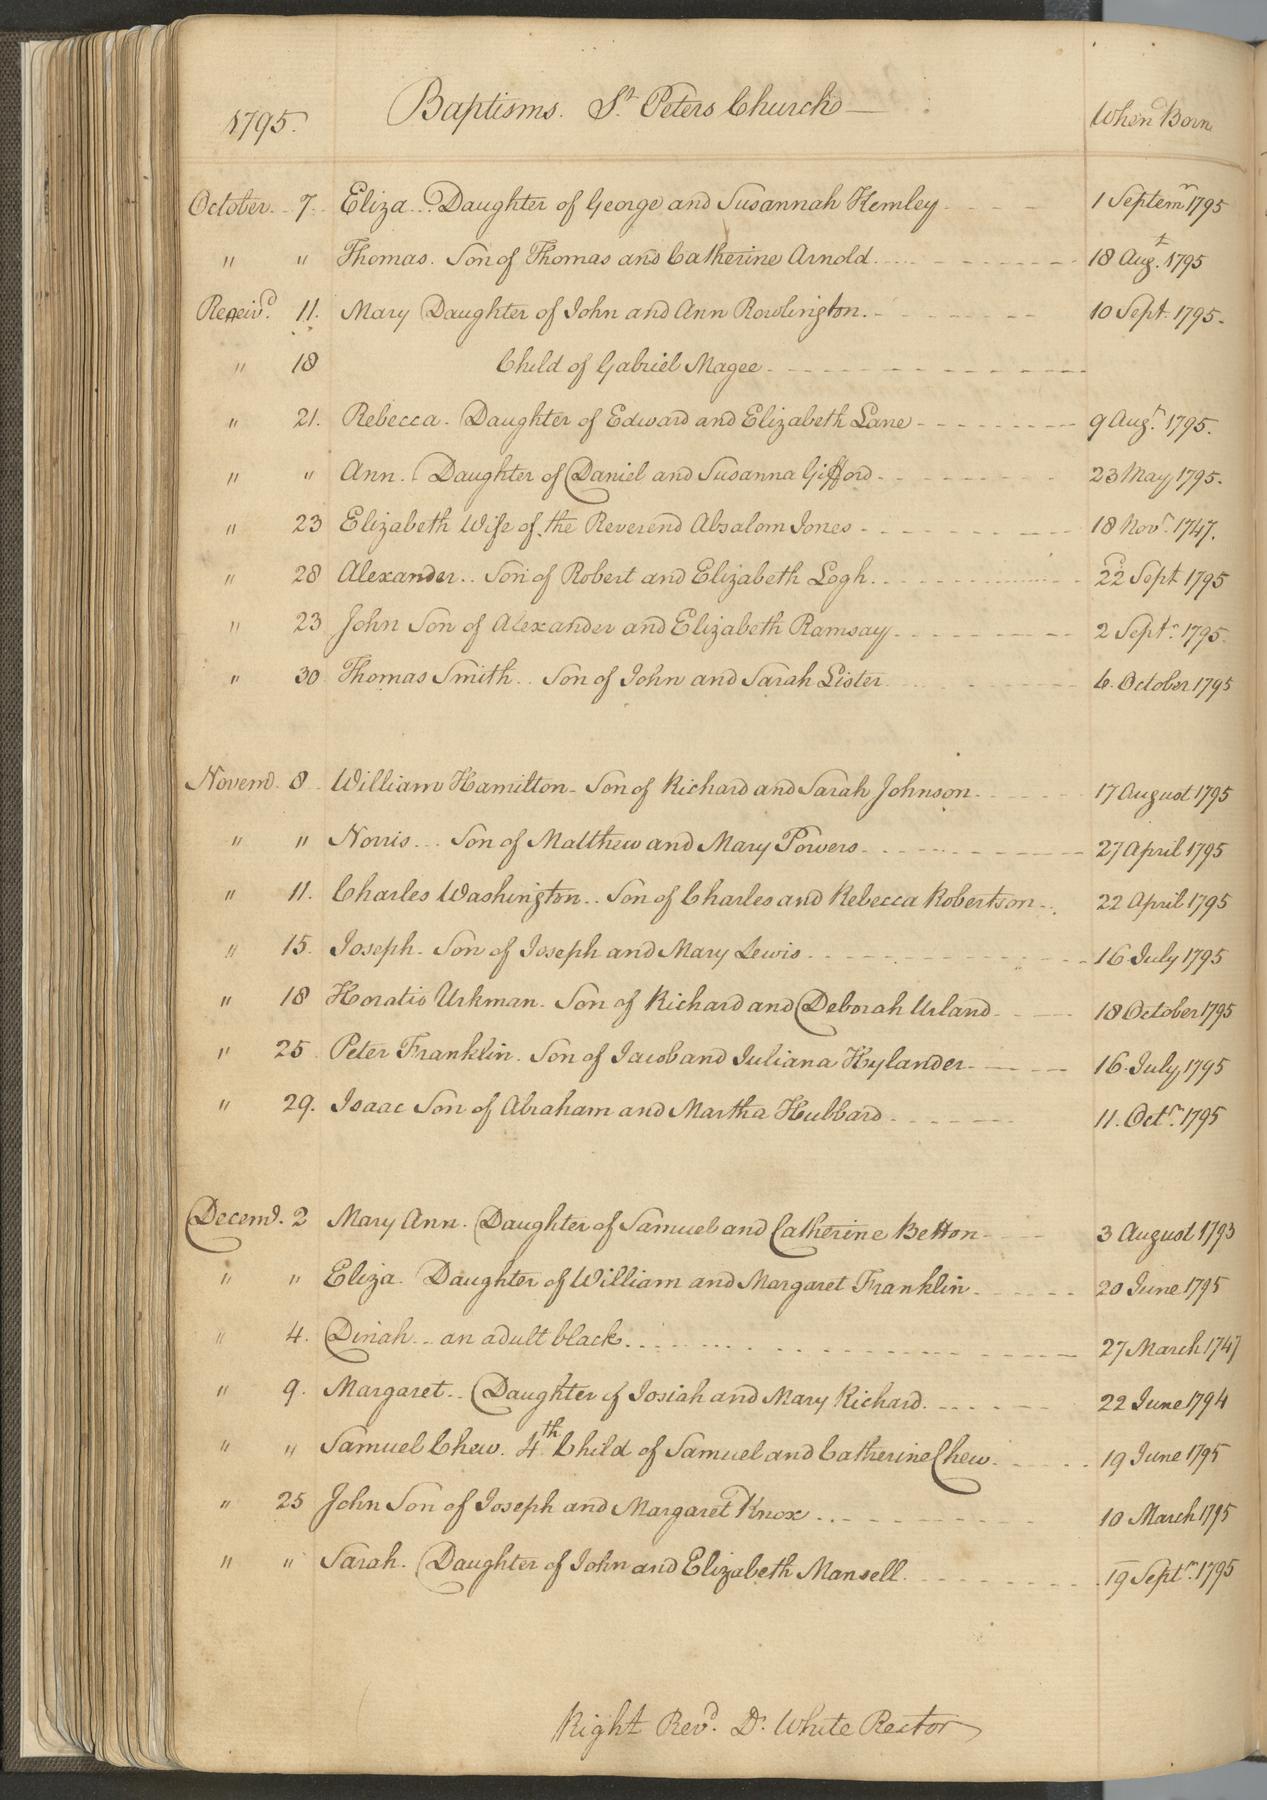 1795. Baptisms. St. Peters Church — When Born
October 7. Eliza... Daughter of George and Susannah Kemley 1 Septemr 1795
" " Thomas. Son of Thomas and Catherine Arnold 18 Augt. 1795
Receivd. 11. Mary Daughter of John and Ann Rowlington. 10 Sept. 1795.
" 18 Child of Gabriel Magee
" 21. Rebecca. Daughter of Edward and Elizabeth Lane 9 Augt. 1795.
" " Ann. Daughter of Daniel and Susanna Gifford 23 May 1795.
" 23 Elizabeth Wife of the Reverend Absalom Jones 18 Novr. 1747.
" 28 Alexander.. Son of Robert and Elizabeth Logh. 22 Sept 1795
" 23 John Son of Alexander and Elizabeth Ramsay 2 Septr. 1795.
" 30 Thomas Smith.. Son of John and Sarah Lister 6. October 1795
Novemd. 8 William Hamilton. Son of Richard and Sarah Johnson 17 August 1795
" " Norris... Son of Matthew and Mary Powers 27 April 1795
" 11. Charles Washington.. Son of Charles and Rebecca Robertson 22 April 1795
" 15. Joseph. Son of Joseph and Mary Lewis 16 July 1795
" 18 Horatio Urkman. Son of Richard and Deborah Urland 18 October 1795
" 25 Peter Franklin. Son of Jacob and Juliana Hylander 16. July 1795
" 29. Isaac Son of Abraham and Martha Hubbard 11. Octr. 1795
Decemd. 2 Mary Ann. Daughter of Samuel and Catherine Betton 3 August 1793
" " Eliza. Daughter of William and Margaret Franklin 20 June 1795
" 4. Dinah.. an adult black. 27 March 1747
" 9. Margaret.. Daughter of Josiah and Mary Richard. 22 June 1794
" " Samuel Chew. 4th Child of Samuel and Catherine Chew. 19 June 1795
" 25 John Son of Joseph and Margaret Knox 10 March 1795
" " Sarah. Daughter of John and Elizabeth Mansell 19 Septr. 1795
Right Revd. Dr. White Rector